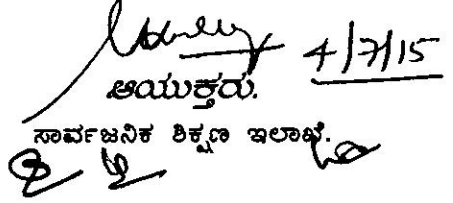 4/7/15
ಆಯುಕ್ತರು.
ಸಾರ್ವಜನಿಕ ಶಿಕ್ಷಣ ಇಲಾಖೆ.